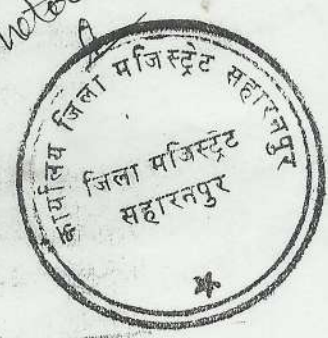 कार्यालय जिला मजिस्ट्रेट सहारनपुर
जिला मजिस्ट्रेट
सहारनपुर